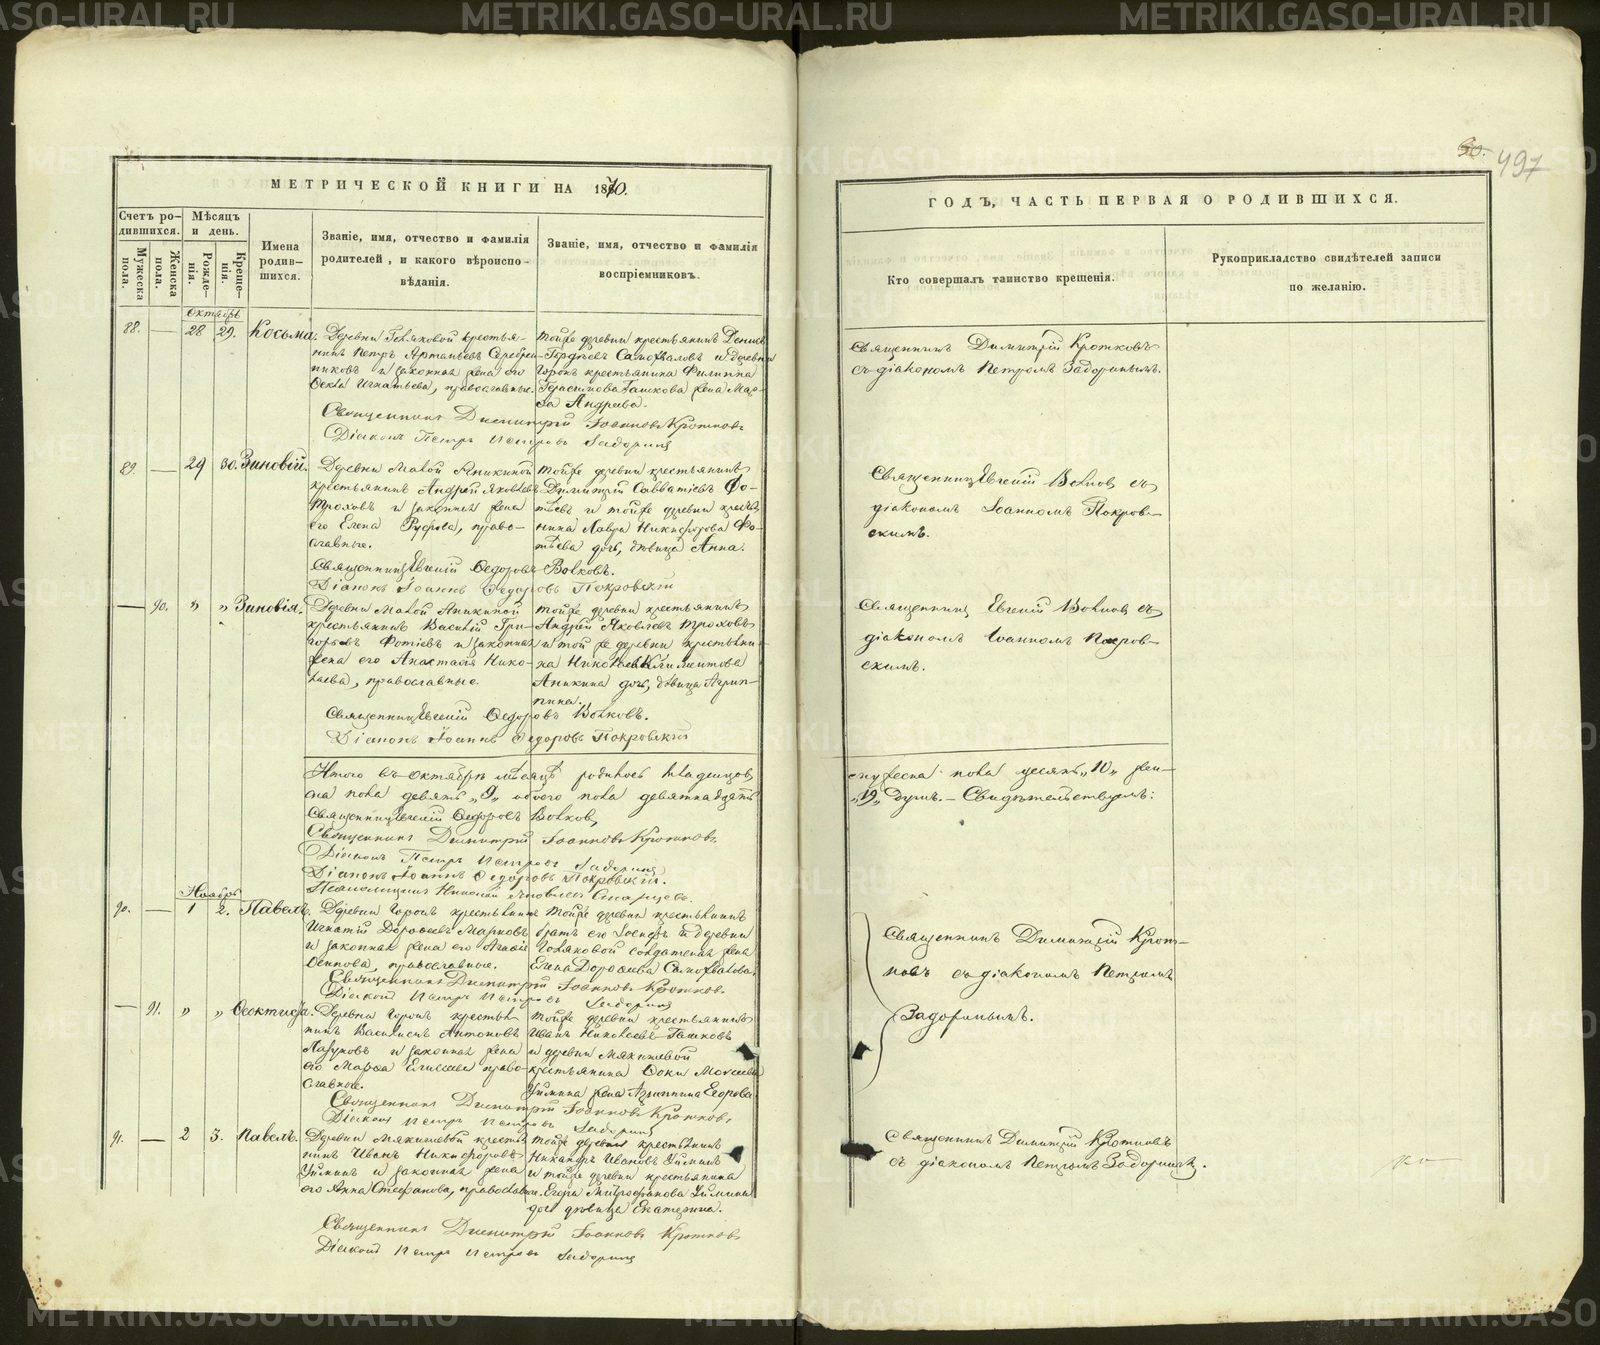 METRIKI.GASO-URAL.RU
30. 497
МЕТРИЧЕСКОЙ КНИГИ НА 1870.
Счетъ родившихся.
Мѣсяцъ и день.
Имена родившихся.
Званіе, имя, отчество и фамилія родителей, и какого вѣроисповѣданія.
Званіе, имя, отчество и фамилія воспріемниковъ.
Мужеска пола.
Женска пола.
Рожденія.
Крещенія.
Октябрь
88. — 28 29. Косьма.
Деревни Голяковой крестья-
нинъ Петръ Артамоновъ Серебрен-
никовъ и законная жена его
Игнатьева, православные.
Тойже деревни крестьянинъ Денисъ
Гордѣевъ Самохваловъ и деревни
Горокъ крестьянина Филиппа
Герасимова Гашкова жена Мар-
ѳа Андреева.
Священникъ Димитрій Іоанновъ Кротковъ
Діаконъ Петръ Петровъ Задоринъ
89. — 29 30. Зиновій.
Деревни Малой Аникиной
крестьянинъ Андрей Яковлевъ
Троховъ и законная жена
его Елена православные.
Тойже деревни крестьянинъ
Димитрій Савватіевъ Фо-
тѣевъ и тойже деревни крестья-
нина Лавра Никифорова Фо-
тѣева дочь, дѣвица Анна.
Священникъ Евгеній Ѳедоровъ Волковъ.
Діаконъ Іоаннъ Ѳедоровъ Покровскій
— 90. „ „ Зиновія.
Деревни Малой Аникиной
крестьянинъ Василій Гри-
горьевъ Фотіевъ и законная
жена его Анастасія Нико-
лаева, православные.
Тойже деревни крестьянинъ
Андрей Яковлевъ Троховъ
и той же деревни крестьяни-
на Климентова
Аникина дочь, дѣвица Агрип-
пина.
Священникъ Евгеній Ѳедоровъ Волковъ.
Діаконъ Іоаннъ Ѳедоровъ Покровскій
Итого въ октябрѣ мѣсяцѣ родилось младенцовъ
на пола девять „9„ обоего пола девятнадцать
Священникъ Евгеній Ѳедоровъ Волковъ,
Священникъ Димитрій Іоанновъ Кротковъ.
Діаконъ Петръ Петровъ Задоринъ
Діаконъ Іоаннъ Ѳедоровъ Покровскій.
Псаломщикъ Николай Яковлевъ
Ноябрь
90. — 1 2. Павелъ.
Деревни Горокъ крестьянинъ
Игнатій Дороѳеевъ Марковъ
и законная жена его Агаѳія
Осипова, православные.
Тойже деревни крестьянинъ
братъ его Іосифъ и деревни
Голяковой солдатская жена
Елена Дороѳеева Самохвалова.
Священникъ Димитрій Іоанновъ Кротковъ.
Діаконъ Петръ Петровъ Задоринъ
— 91. „ „ Ѳеоктиста.
Деревни Горокъ крестья-
нинъ Василій Антоновъ
Лазуковъ и законная жена
его Марѳа Елисеева право-
славные.
Тойже деревни крестьянинъ
Иванъ Николаевъ Гашковъ
и деревни Мякишевой
крестьянина Ѳоки Моисеева
Уймина жена Агриппина Егорова.
Священникъ Димитрій Іоанновъ Кротковъ.
Діаконъ Петръ Петровъ Задоринъ
91. — 2 3. Павелъ.
Деревни Мякишевой крестья-
нинъ Иванъ Никифоровъ
Уйминъ и законная жена
его Анна Стефанова, православные.
Тойже деревни крестьянинъ
Никаноръ Ивановъ Уйминъ
и тойже деревни крестьянина
Егора Митрофанова Уймина
дочь дѣвица Екатерина.
Священникъ Димитрій Іоанновъ Кротковъ
Діаконъ Петръ Петровъ Задоринъ
ГОДЪ, ЧАСТЬ ПЕРВАЯ О РОДИВШИХСЯ.
Кто совершалъ таинство крещенія.
Рукоприкладство свидѣтелей записи
по желанію.
Священникъ Димитрій Кротковъ
съ діакономъ Петромъ Задоринымъ.
Священникъ Евгеній Волковъ съ
діакономъ Іоанномъ Покров-
скимъ.
Священникъ Евгеній Волковъ съ
діакономъ Іоанномъ Покров-
скимъ.
мужеска пола десять „10„ жен-
„19„ душъ. — Свидѣтельствуемъ:
Священникъ Димитрій Крот-
ковъ съ діакономъ Петромъ
Задоринымъ.
Священникъ Димитрій Кротковъ
съ діакономъ Петромъ Задоринымъ.